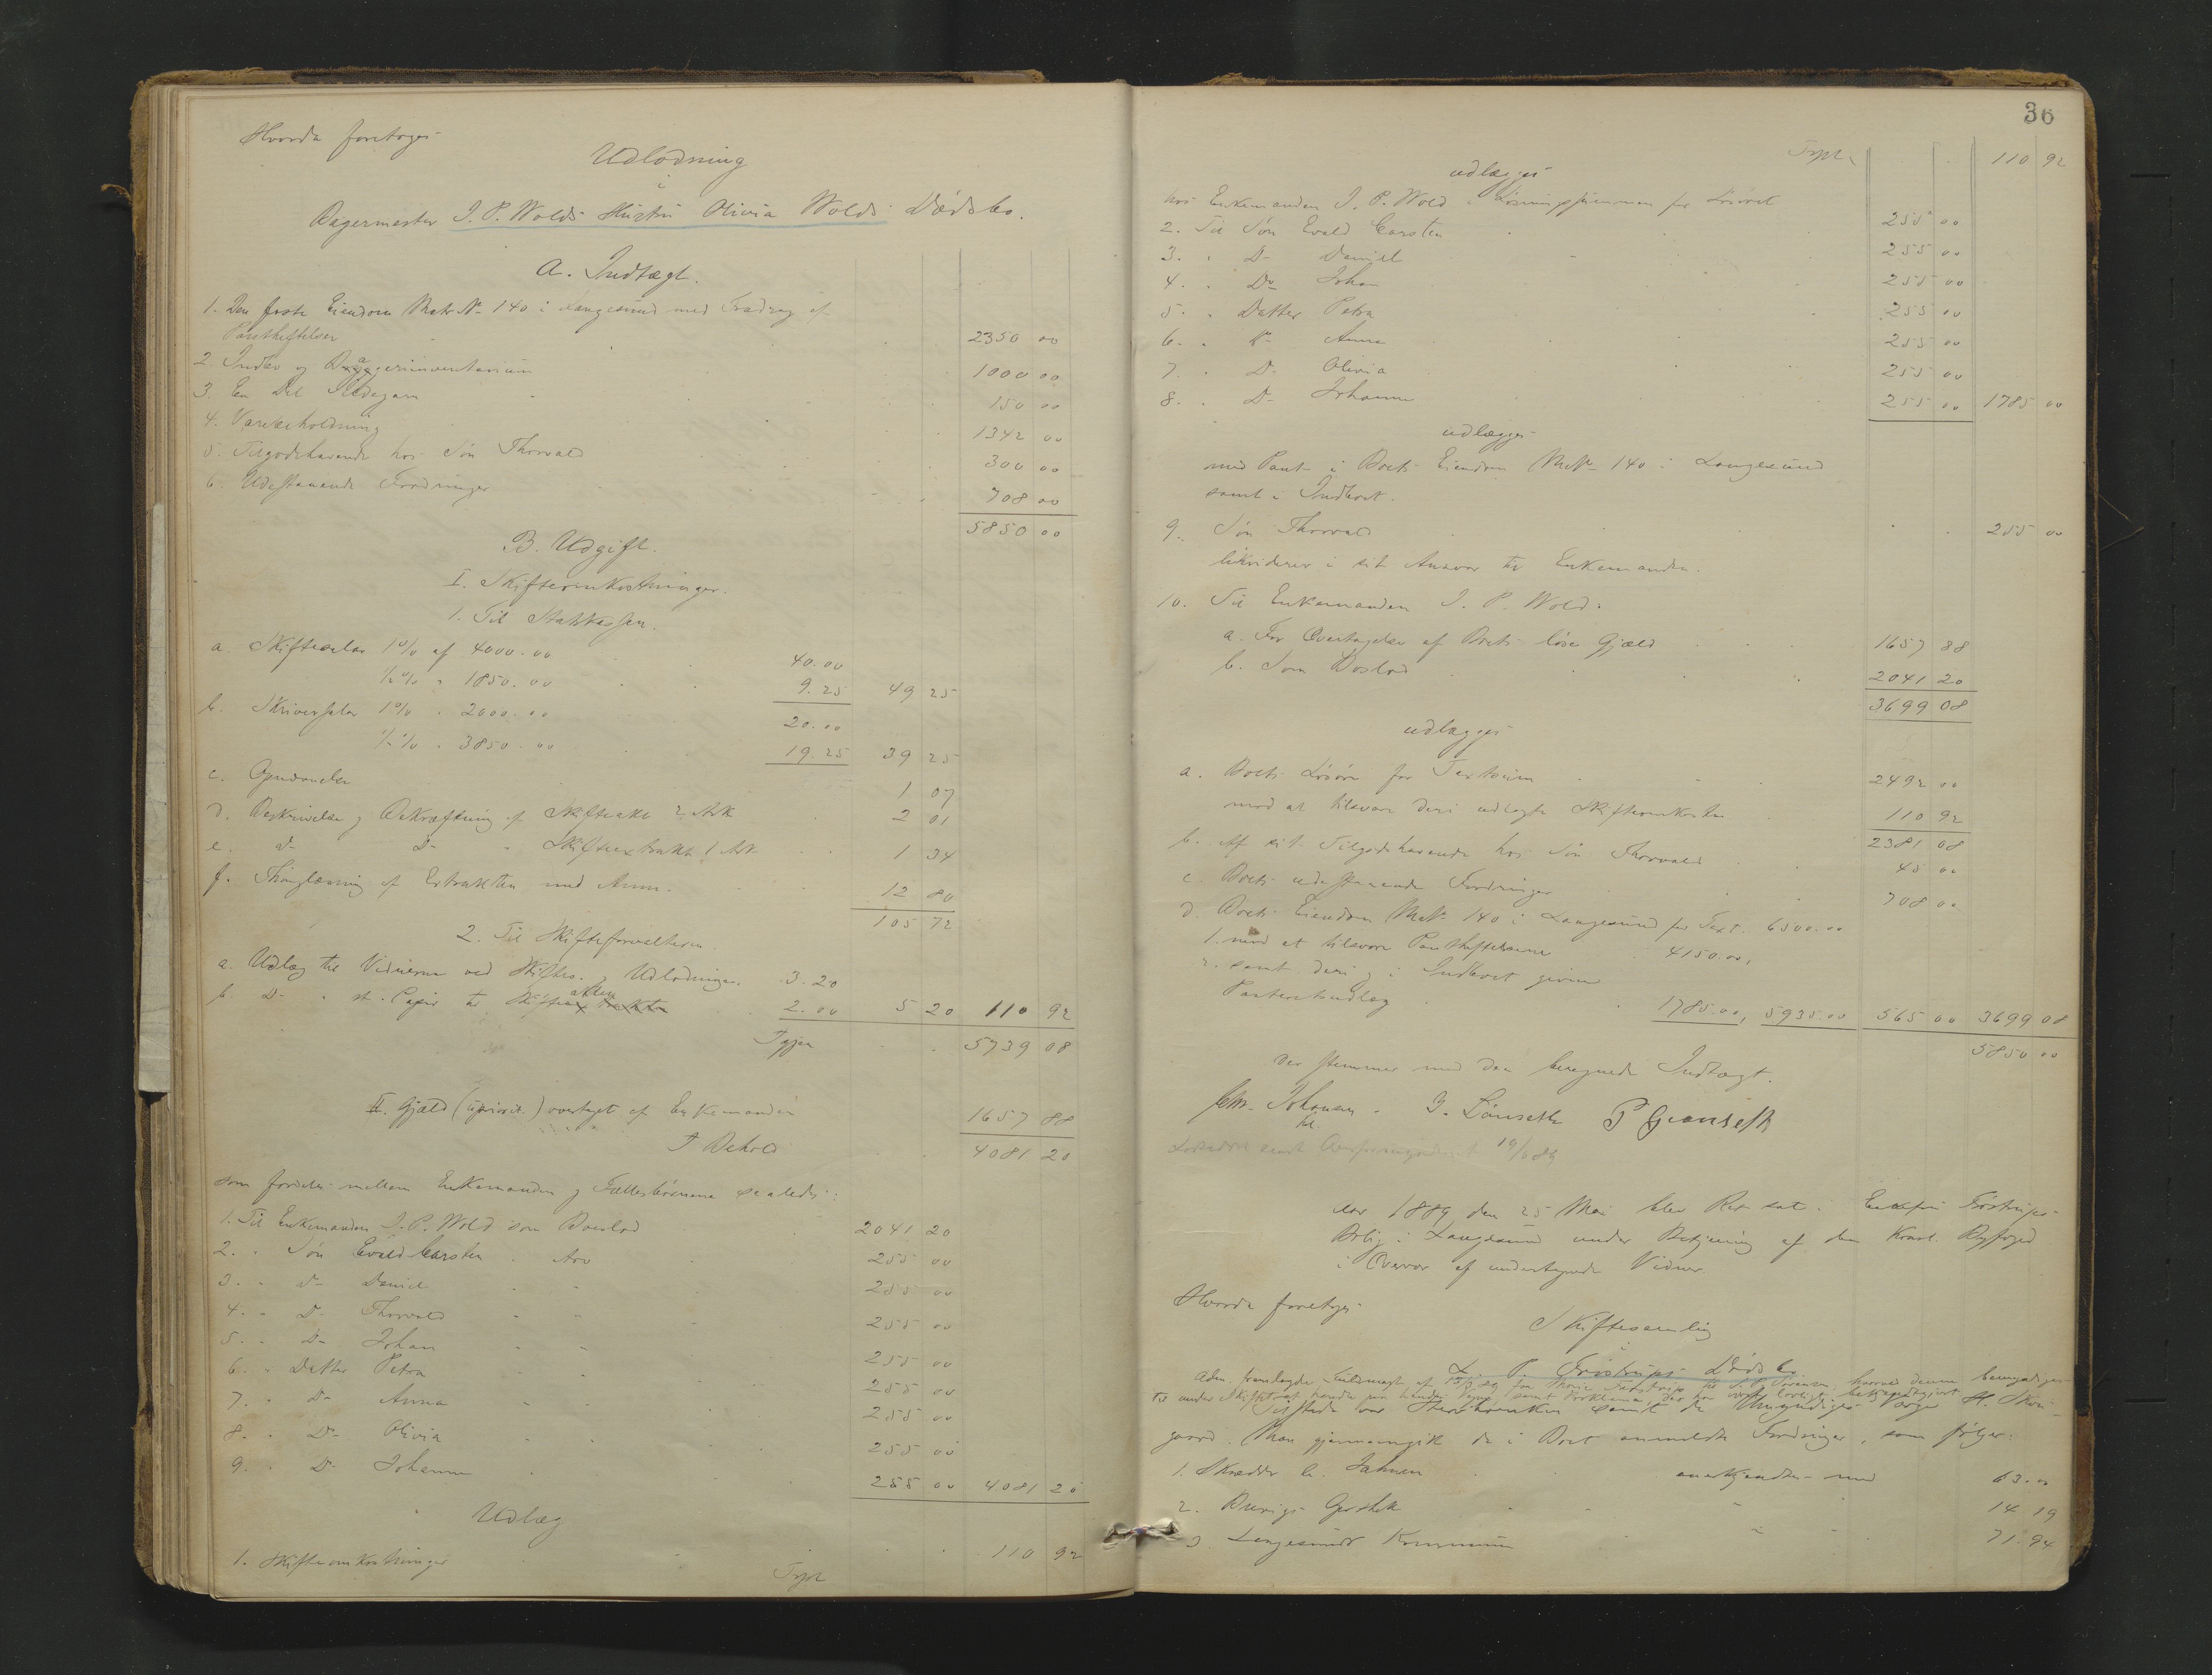 Hvorda foretoges
Udlodning
i
Bagermester J. P. Wolds Hustru Olivia Wolds Dødsbo.
A. Indtægt.
1. Den faste Eiendom Matr. No 140 i Langesund med Fradrag af
Pantheftelser 2350 00
2. Indbo og Bageriinventarium 1000 00
3. En Del 150 00
4. Varebeholdning 1342 00
5. Tilgodehavende hos Søn Thorvald 300 00
6. Udestaaende Fordringer 708 00
5850 00
B. Udgift.
I. Skifteomkostninger.
1. Til Statskassen.
a. Skiftesalær 1% af 4000.00 40.00
½% " 1850.00 9.25 49 25
b. Skriversalær 1% " 2000.00 20.00
½% " 3850.00 19.25 39 25
c. 1 07
d. Beskrivelse og Bekræftning af Skifteakt 2 Ark 2 01
e. Do Do " Skifteextrakt 1 Ark 1 34
f. Thinglæsning af Extrakten med Ann. 12 80
105 72
2. Til Skifteforvalteren.
a. Udlæg til Vidnerne ved Skifte- og Udlodningen 3.20
b. Do " st. Papir til Skifteakten 2.00 5 20 110 92
Igjen 5739 08
II. Gjæld (uprior.) overtaget af Enkemanden 1657 88
I Behold 4081 20
som fordeles mellem Enkemanden og Fællesbørnene saaledes:
1. Til Enkemanden J. P. Wold som Boeslod 2041 20
2. " Søn Evald Carsten " Arv 255 00
3. " Do Daniel " 255 00
4. " Do Thorvald " 255 00
5. " Do Johan " 255 00
6. " Datter Petra 255 00
7. " Do Anna " 255 00
8. " Do Olivia 255 00
9. " Do Johanne 255 00 4081 20
Udlæg
1. Skifteomkostninger 110 92
Trpt
36
Trpt. 110 92
udlægges
hos Enkemanden J. P. Wold i Løsningssummen for Løsøret
2. Til Søn Evald Carsten 255 00
3. " Do Daniel 255 00
4. " Do Johan 255 00
5. " Datter Petra 255 00
6. " Do Anna 255 00
7. " Do Olivia 255 00
8. " Do Johanne 255 00 1785 00
udlægges
med Pant i Boets Eiendom MNo 140 i Langesund
samt i Indboet.
9. Søn Thorvald 255 00
likviderer i sit Ansvar til Enkemanden.
10. Til Enkemanden J. P. Wold:
a. For Overtagelse af Boets løse Gjæld 1657 88
b. Som Boslod 2041 20
3699 08
udlægges
a. Boets Løsøre for Taxtsum 2492 00
mod at tilsvare deri udlagte Skifteomkostn. 110 92
2381 08
b. Af sit Tilgodehavende hos Søn Thorvald 45 00
c. Boets udestaaende Fordringer 708 00
d. Boets Eiendom MNo 140 i Langesund for Taxt. 6500.00
1. mod at tilsvare Pantheftelserne 4150.00,
2. samt deri og i Indboet given
Panteretsudlæg 1785.00, 5935.00 565 00 3699 08
5850 00
der stemmer med den beregnede Indtægt.
Chr. Johnsen. J. Lønseth P Grønseth
Aar 1889 den 25 Mai blev Ret sat i Enkefru Frøstrups
Bolig i Langesund under Betjening af den Konst. Byfoged
i Overvær af undertegnede Vidner
Hvorda foretoges
Skiftesamling
i
L. P. Frøstrups Dødsbo
Adm. fremlagde Fuldmagt af
Tilstede var samt de Umyndiges Værge H. Skou-
gaard. Man gjennemgik de i Boet anmeldte Fordringer, som følger:
1. Skrædder C. Jahnsen anerkjendtes med 63.00
2. Brevigs Apothek " 14 19
3. Langesunds Kommune " 71.94